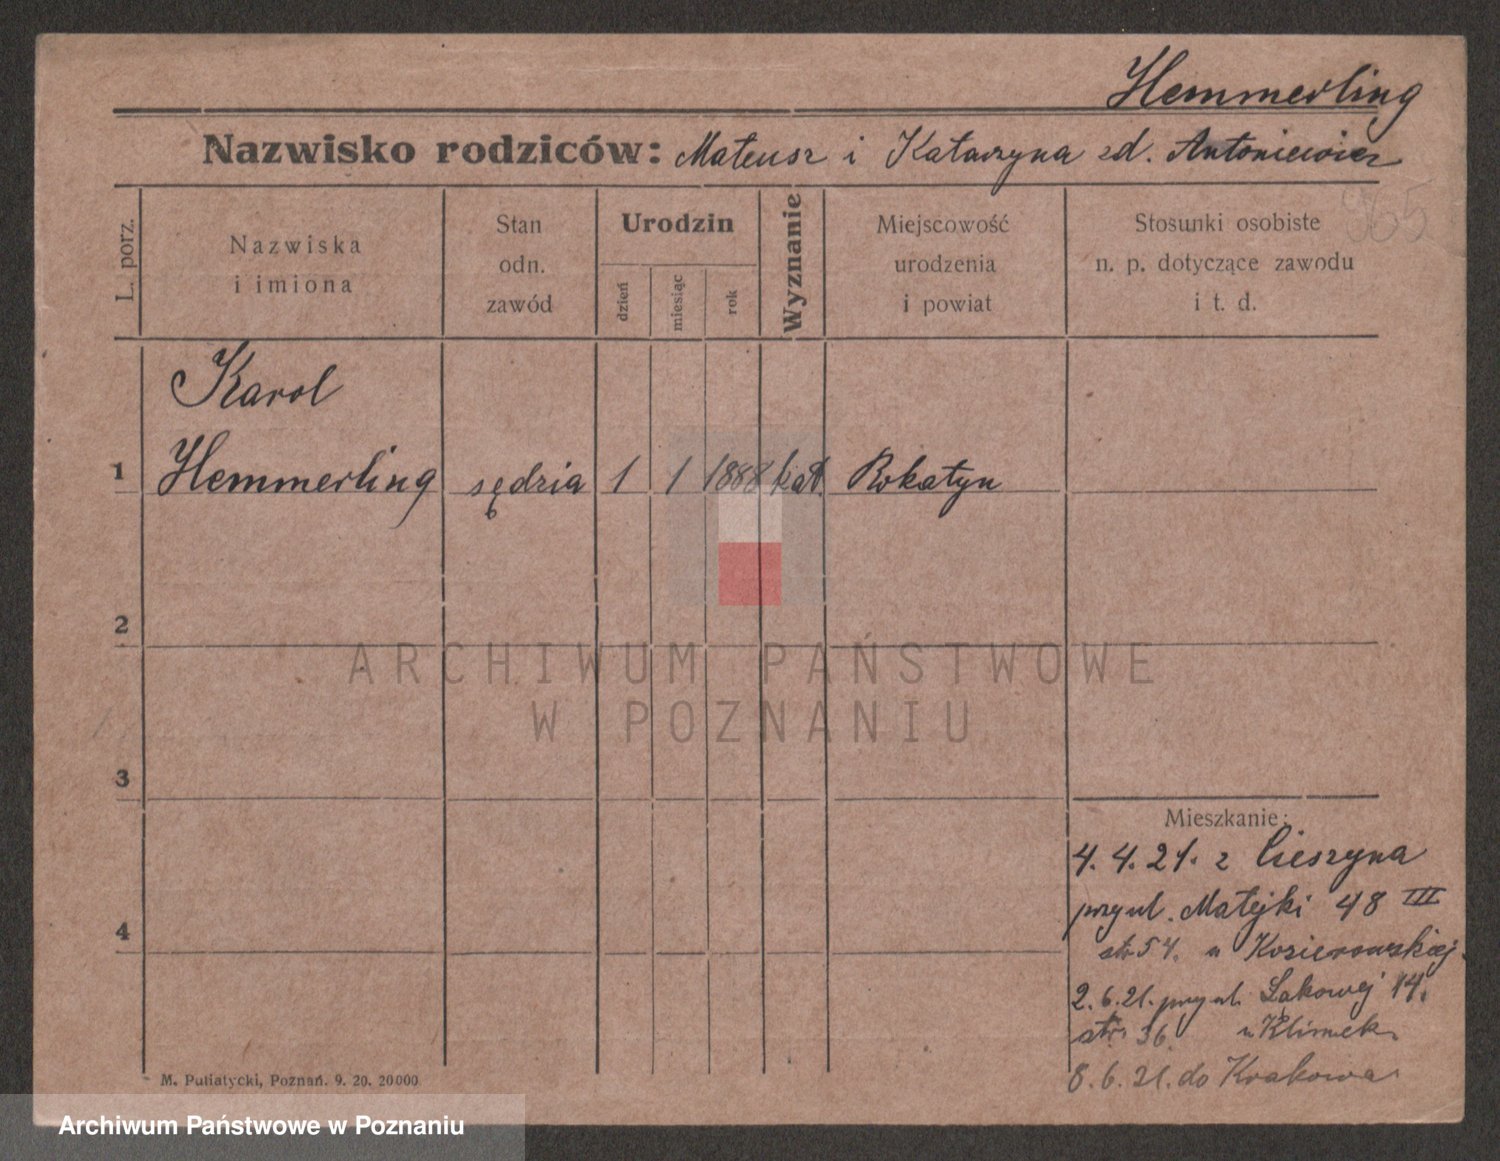 Hemmerling
Nazwisko rodziców: Mateusz i Katarzyna zd. Antoniewicz
965
L. porz.
Nazwiska
i imiona
Stan
odn.
zawód
Urodzin
dzień
miesiąc
rok
Wyznanie
Miejscowość
urodzenia
i powiat
Stosunki osobiste
n. p. dotyczące zawodu
i t. d.
Karol
1 Hemmerling sędzia 1 1 1888 kat. Rokatyn
2
ARCHIWUM PAŃSTWOWE
W POZNANIU
3
Mieszkanie:
4. 4. 21. z Cieszyna
przy ul. Matejki 48 III
str 54. u Kozierowskiej.
2. 6. 21. przy ul. Łąkowej 14.
str. 36. u Klimek
8. 6. 21. do Krakowa
4
M. Putiatycki, Poznań. 9. 20. 20000
Archiwum Państwowe w Poznaniu